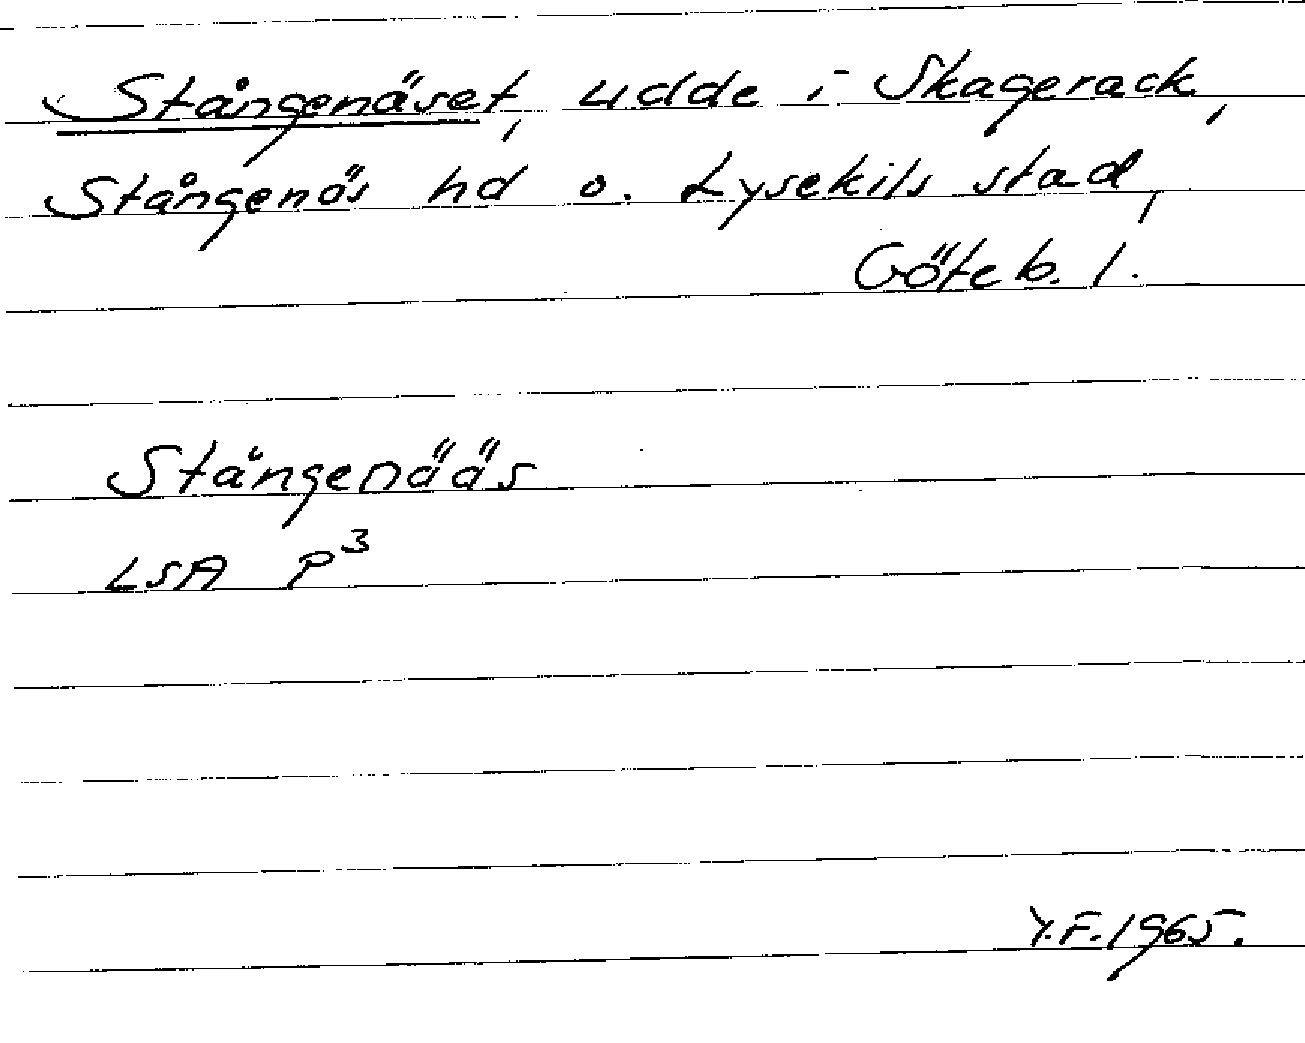 Stångenäset, udde i Skagerack,
Stångenäs hd o. Lysekils stad,
Göteb. l.
Stångenääs
LSA P³
Y.F. 1965.